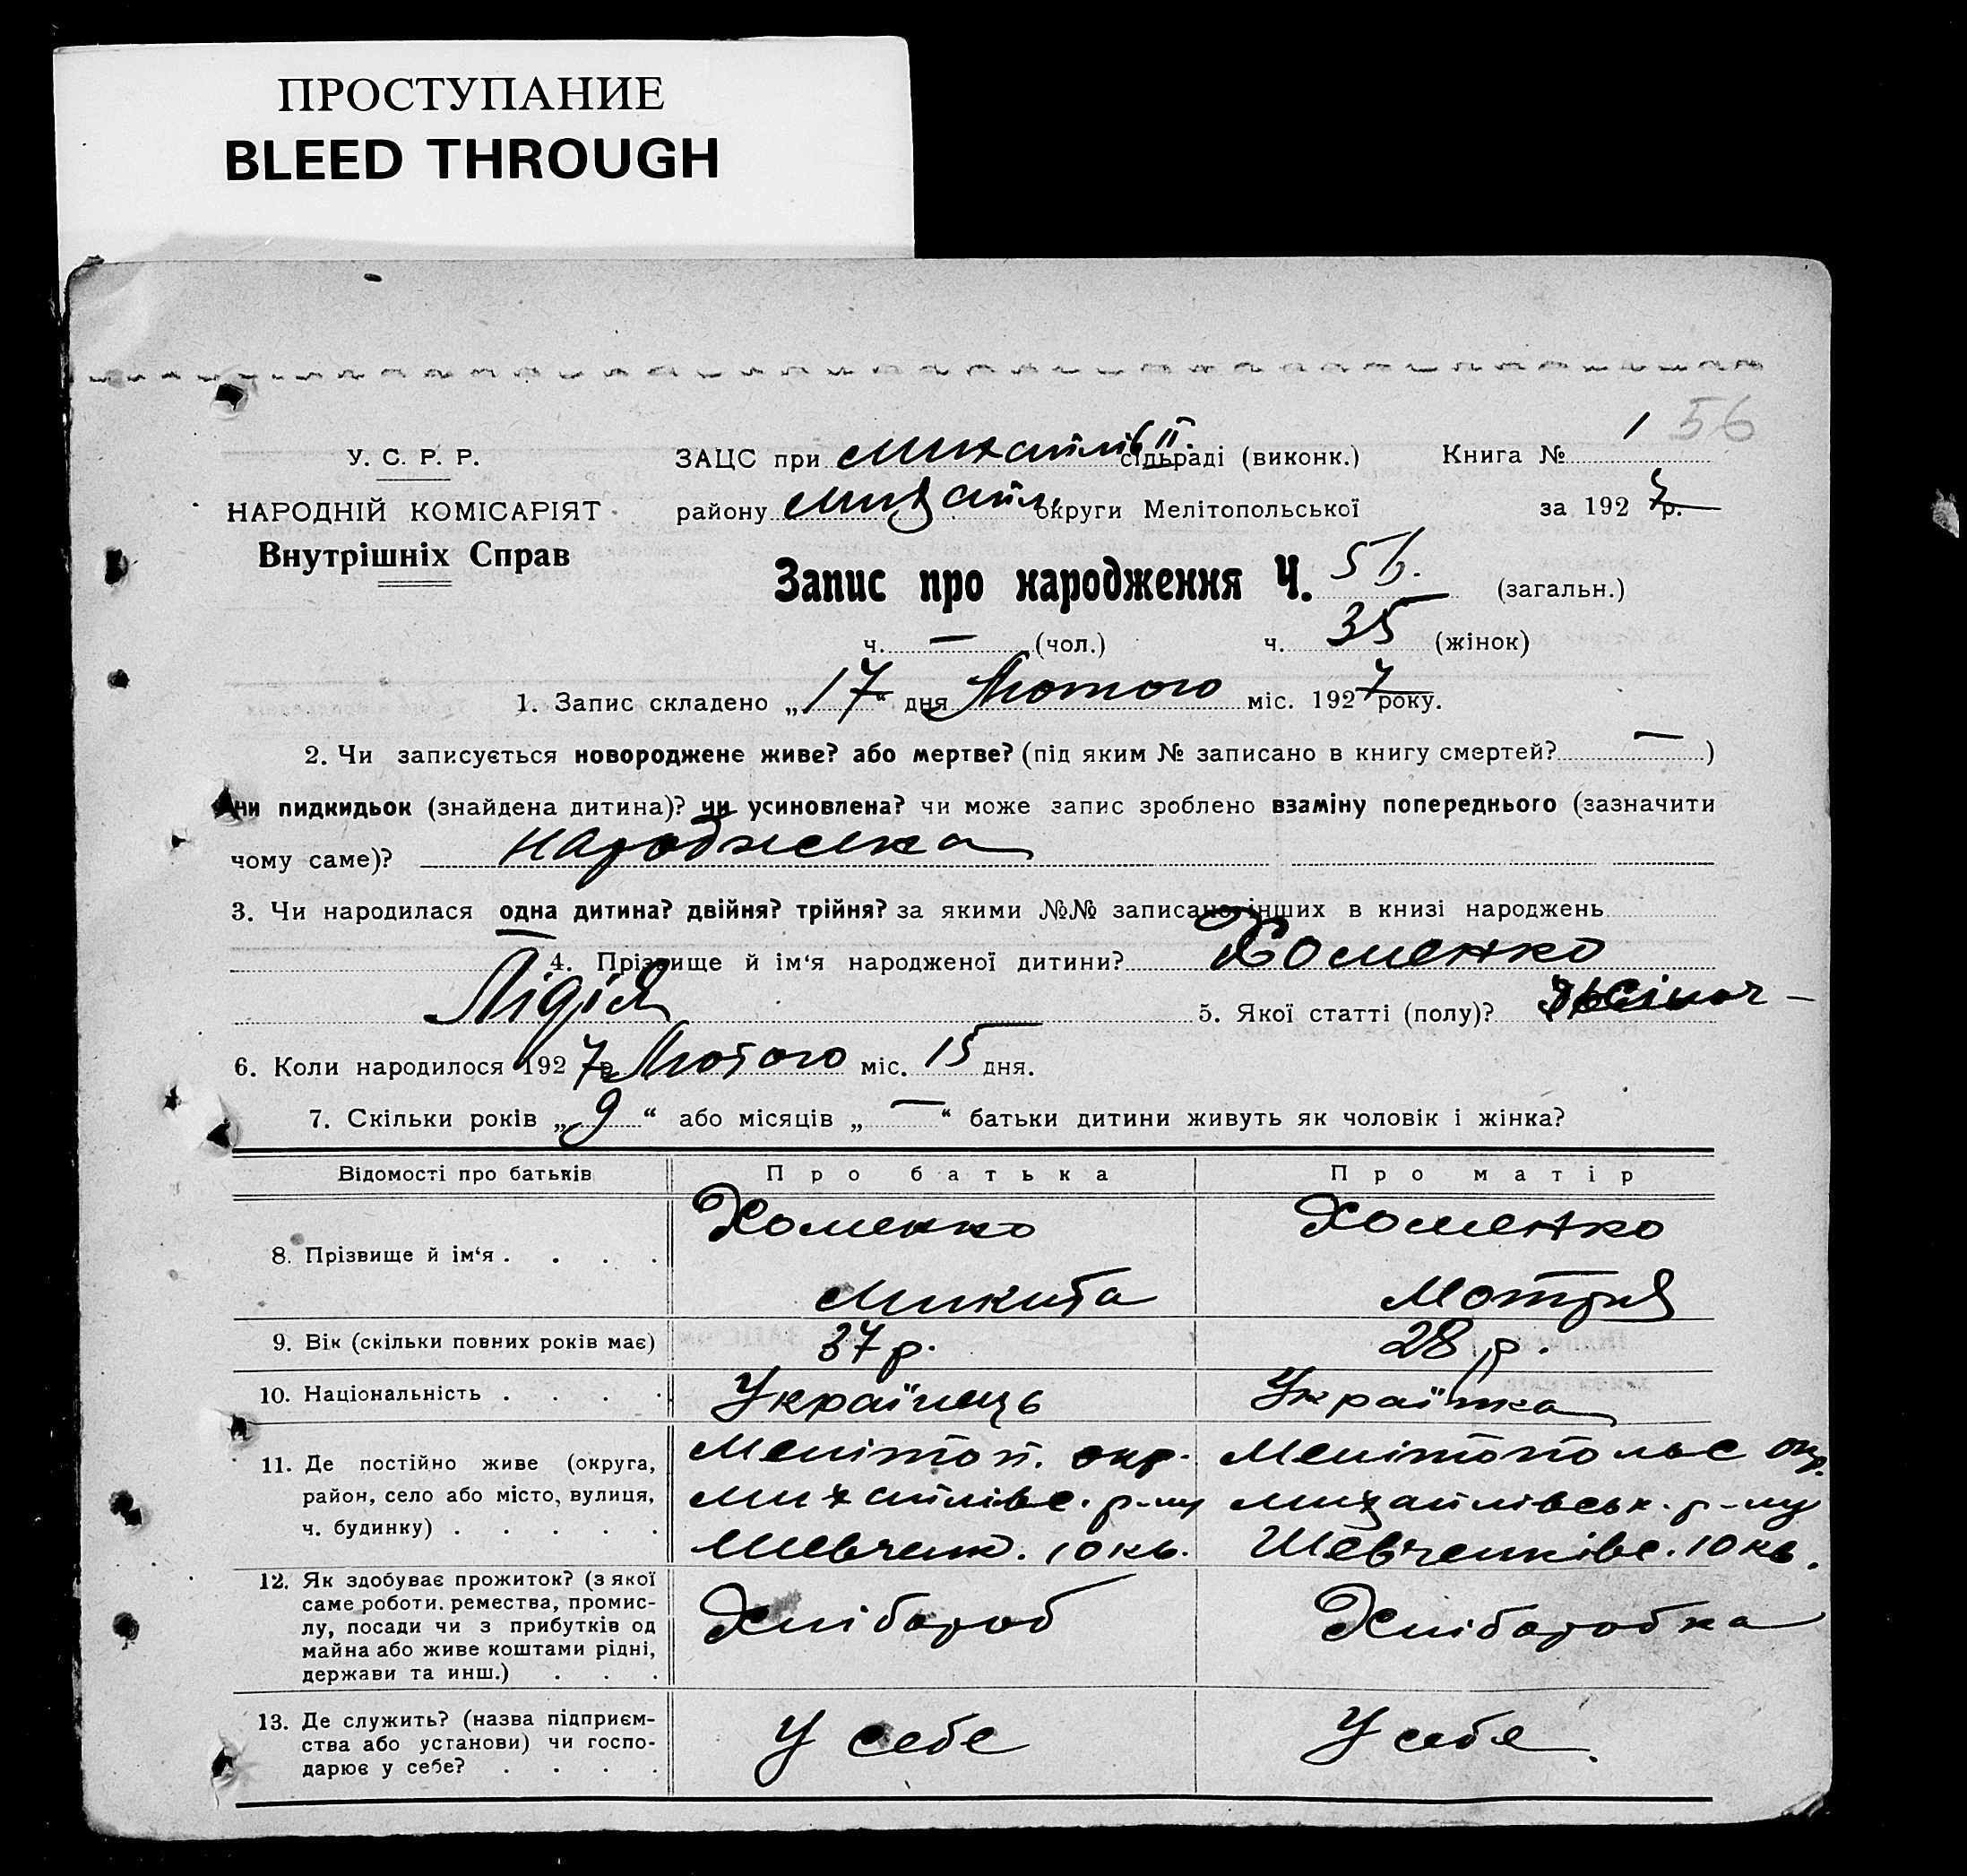 ПРОСТУПАНИЕ
BLEED THROUGH
56
У. С. Р. Р. ЗАЦС при Михайлів II. сільраді (виконк.) Книга № 1
НАРОДНІЙ КОМІСАРІЯТ району Михайл. округи Мелітопольської за 1927 р.
Внутрішніх Справ
Запис про народження Ч. 56. (загальн.)
ч. — (чол.) ч. 35 (жінок)
1. Запис складено „17“ дня Лютого міс. 1927 року.
2. Чи записується новороджене живе? або мертве? (під яким № записано в книгу смертей? — )
чи пидкидьок (знайдена дитина)? чи усиновлена? чи може запис зроблено взаміну попереднього (зазначити
чому саме)? народженна
3. Чи народилася одна дитина? двійня? трійня? за якими №№ записано інших в книзі народжень
4. Прізвище й ім‘я народженої дитини? Хоменко
Лідія 5. Якої статті (полу)? Жіноч –
6. Коли народилося 1927 р. Лютого міс. 15 дня.
7. Скільки років „9“ або місяців „—“ батьки дитини живуть як чоловік і жінка?
Відомості про батьків Про батька Про матір
8. Прізвище й ім‘я . . . . Хоменко Микита Хоменко Мотрия
9. Вік (скільки повних років має) 37 р. 28 р.
10. Національність . . . . Українець Українка
11. Де постійно живе (округа, Мелітоп. окр. Мелітопольс окр.
район, село або місто, вулиця, Михайлівс. р-ну Михайлівськ. р-ну
ч. будинку) . . . . . Шевченк. 10 кв. Шевченківс. 10 кв.
12. Як здобуває прожиток? (з якої
саме роботи. ремества, промис-
лу, посади чи з прибутків од Хлібороб Хліборобка
майна або живе коштами рідні,
держави та инш.) . . .
13. Де служить? (назва підприєм-
ства або установи) чи госпо- У себе У себе.
дарює у себе? . . . .